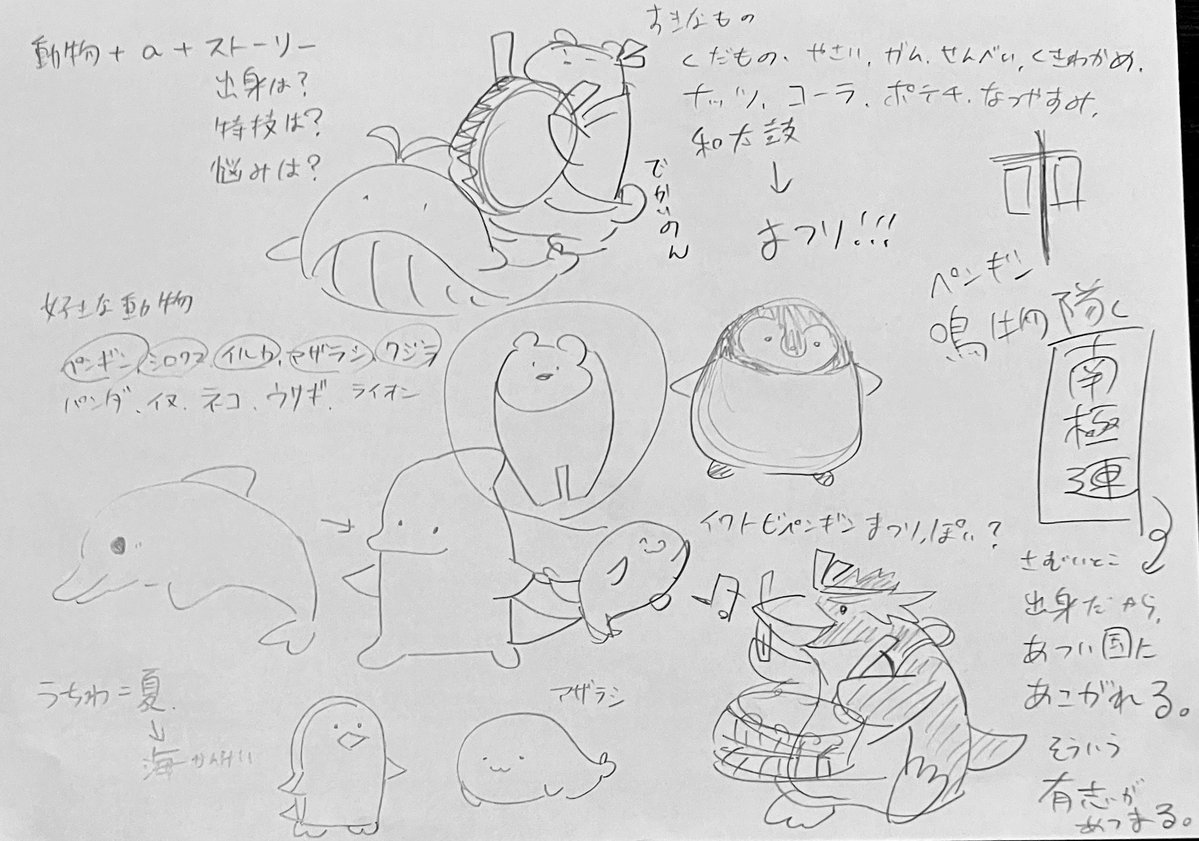 動物+α+ストーリー
出身は?
特技は?
悩みは?
すきなもの
くだもの、やさい、ガム、せんべい、くきわかめ、
ナッツ、コーラ、ポテチ、なつやすみ、
和太鼓
↓
まつり!!!
でかいのん
好きな動物
ペンギン、シロクマ、イルカ、アザラシ、クジラ
パンダ、イヌ、ネコ、ウサギ、ライオン
ペンギン
鳴り物隊
南極連
イワトビペンギンまつりっぽい?
さむいとこ
出身だから、
あつい国に
あこがれる。
そういう
有志が
あつまる。
うちわ=夏
↓
海かんけい
アザラシ